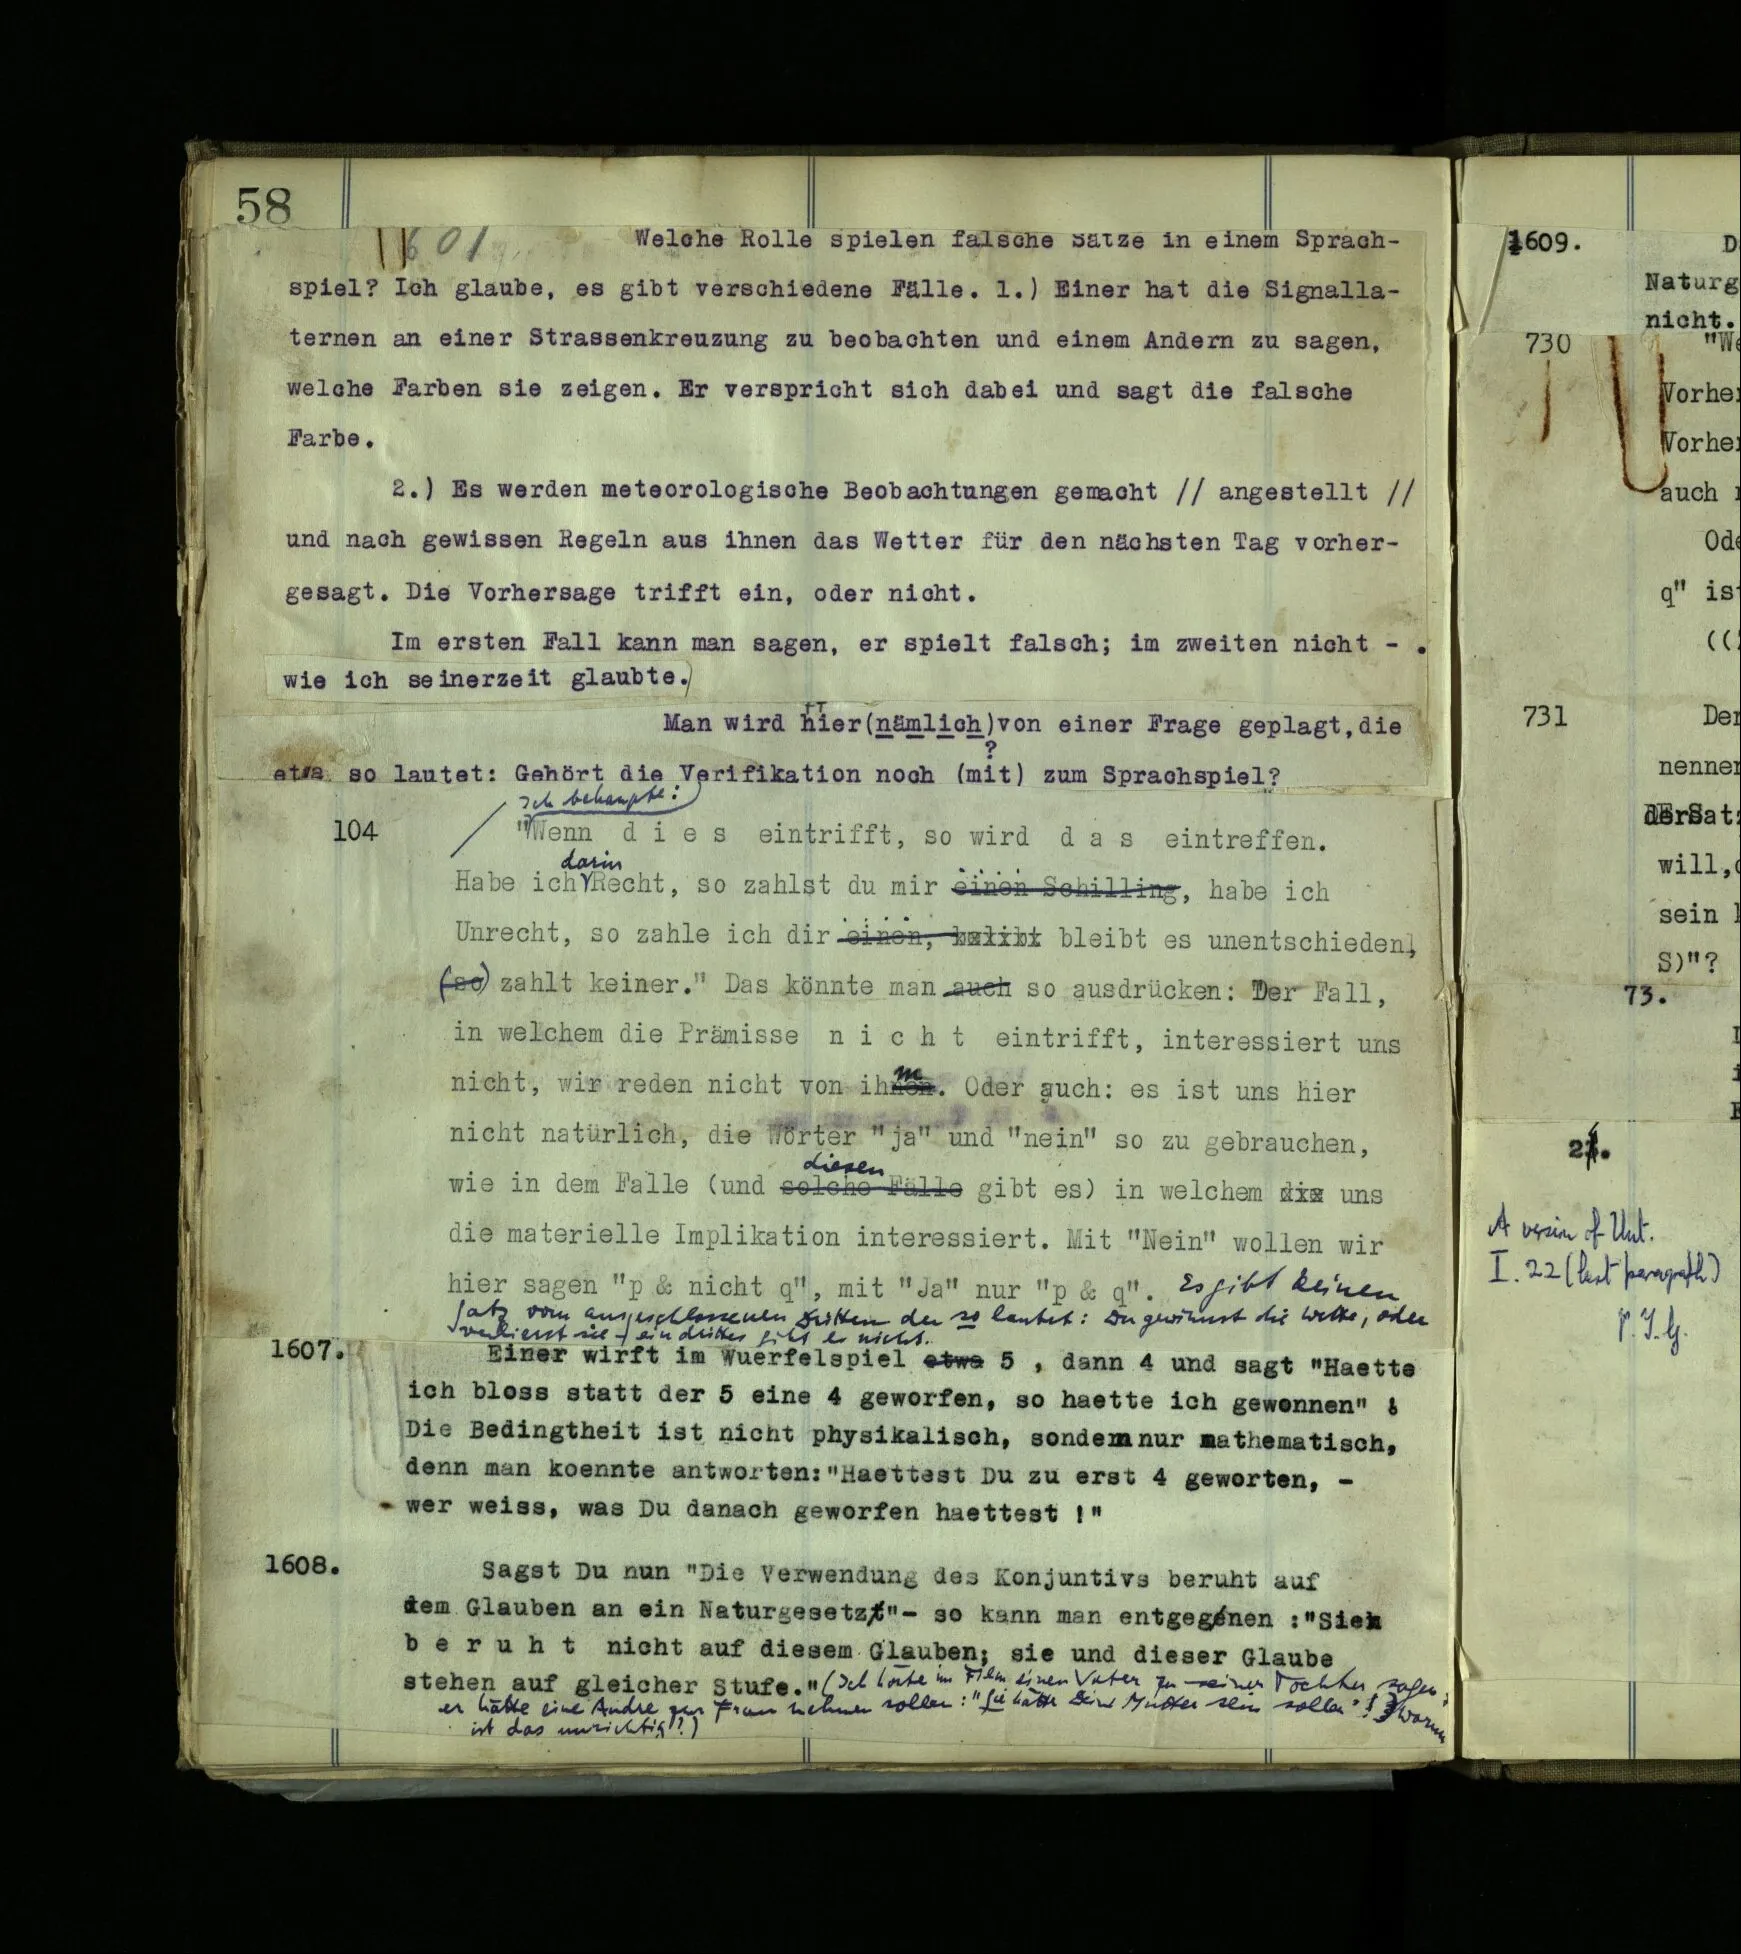 58
601 Welche Rolle spielen falsche Sätze in einem Sprach-
spiel? Ich glaube, es gibt verschiedene Fälle. 1.) Einer hat die Signalla-
ternen an einer Strassenkreuzung zu beobachten und einem Andern zu sagen,
welche Farben sie zeigen. Er verspricht sich dabei und sagt die falsche
Farbe.
2.) Es werden meteorologische Beobachtungen gemacht // angestellt //
und nach gewissen Regeln aus ihnen das Wetter für den nächsten Tag vorher-
gesagt. Die Vorhersage trifft ein, oder nicht.
Im ersten Fall kann man sagen, er spielt falsch; im zweiten nicht - .
wie ich seinerzeit glaubte.)
Man wird hier(nämlich)von einer Frage geplagt,die
?
etwa so lautet: Gehört die Verifikation noch (mit) zum Sprachspiel?
Ich behaupte:
104 "Wenn d i e s eintrifft, so wird d a s eintreffen.
darin
Habe ich Recht, so zahlst du mir einen Schilling, habe ich
Unrecht, so zahle ich dir einen, bleibt es unentschieden,
(so) zahlt keiner." Das könnte man auch so ausdrücken: Der Fall,
in welchem die Prämisse n i c h t eintrifft, interessiert uns
m
nicht, wir reden nicht von ihnen. Oder auch: es ist uns hier
nicht natürlich, die Wörter "ja" und "nein" so zu gebrauchen,
diesen
wie in dem Falle (und solche Fälle gibt es) in welchem die uns
die materielle Implikation interessiert. Mit "Nein" wollen wir
hier sagen "p & nicht q", mit "Ja" nur "p & q". Es gibt keinen
Satz vom ausgeschlossenen Dritten der so lautet: Du gewinnst die Wette, oder
verlierst sie - ein drittes gibt es nicht.
1607. Einer wirft im Wuerfelspiel etwa 5 , dann 4 und sagt "Haette
ich bloss statt der 5 eine 4 geworfen, so haette ich gewonnen" !
Die Bedingtheit ist nicht physikalisch, sondern nur mathematisch,
denn man koennte antworten:"Haettest Du zu erst 4 geworten, -
wer weiss, was Du danach geworfen haettest !"
1608. Sagst Du nun "Die Verwendung des Konjuntivs beruht auf
dem Glauben an ein Naturgesetzt"- so kann man entgegenen :"Sie
b e r u h t nicht auf diesem Glauben; sie und dieser Glaube
stehen auf gleicher Stufe." (Ich hörte im Film einen Vater zu seiner Tochter sagen,
er hätte eine Andre zur Frau nehmen sollen: "Sie hätte Deine Mutter sein sollen"! Warum
ist das unrichtig?)
1609. D
Naturg
nicht.
730 "We
Vorher
Vorher
auch
Ode
q" ist
((
731 Der
nennen
der Satz
will,
sein
S)"?
73.
I
i
E
A version of Unt.
I. 22 (last paragraph)